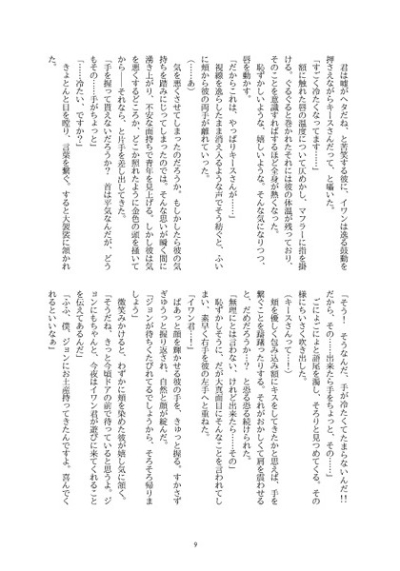 君は嘘がヘタだね、と苦笑する彼に、イワンは逸る鼓動を
押さえながらキースさんだって、と囁いた。
「すごく冷たくなってます……」
額に触れた唇の温度について仄めかし、マフラーに指を掛
ける。ぐるぐると巻かれたそれには彼の体温が残っており、
そのことを意識すればするほど全身が熱くなった。
恥ずかしいような、嬉しいような、そんな気になりつつ、
唇を動かす。
「だからこれは、やっぱりキースさんが……」
視線を逸らしたまま消え入るような声でそう紡ぐと、ふい
に頬から彼の両手が離れていった。
（……あ）
気を悪くさせてしまったのだろうか、もしかしたら彼の気
持ちを踏みにじってしまったのでは、そんな思いが瞬く間に
湧き上がり、不安な面持ちで青年を見上げる。しかし彼は気
を悪くするどころか、どこか照れたように金色の頭を掻いて
から――それなら、と片手を差し出してきた。
「手を握って貰えないだろうか？　首は平気なんだが、どう
もその……手がちょっと」
「……冷たい、ですか？」
きょとんと目を瞠り、言葉を繋ぐ。すると大袈裟に頷かれ
た。
「そう！　そうなんだ、手が冷たくてたまらないんだ!!
だから、その…‥出来たら手をちょっと、その……」
ごにょごにょと語尾を濁し、そろりと見つめてくる。その
様にちいさく吹き出した。
（キースさんって……）
頬を優しく包み込み額にキスをしてきたかと思えば、手を
繋ぐことを躊躇ったりする。それがおかしくて肩を震わせる
と、だめだろうか…？　と恐る恐る続けられた。
「無理にとは言わない、けれど出来たら……その」
恥ずかしそうに、だが大真面目にそんなことを言われてし
まい、素早く右手を彼の左手へと重ねた。
「イワン君…！」
ぱあっと顔を輝かせる彼の手を、きゅっと握る。すかさず
ぎゅうっと握り返され、自然と顔が綻んだ。
「ジョンが待ちくたびれてるでしょうから、そろそろ帰りま
しょう」
微笑みかけると、わずかに頬を染めた彼が嬉し気に頷く。
「そうだね、きっと今頃ドアの前で待っていると思うよ。ジ
ョンにもちゃんと、今夜はイワン君が遊びに来てくれること
を伝えてあるんだ」
「ふふ、僕、ジョンにお土産持ってきたんですよ。喜んでく
れるといいなぁ」
9